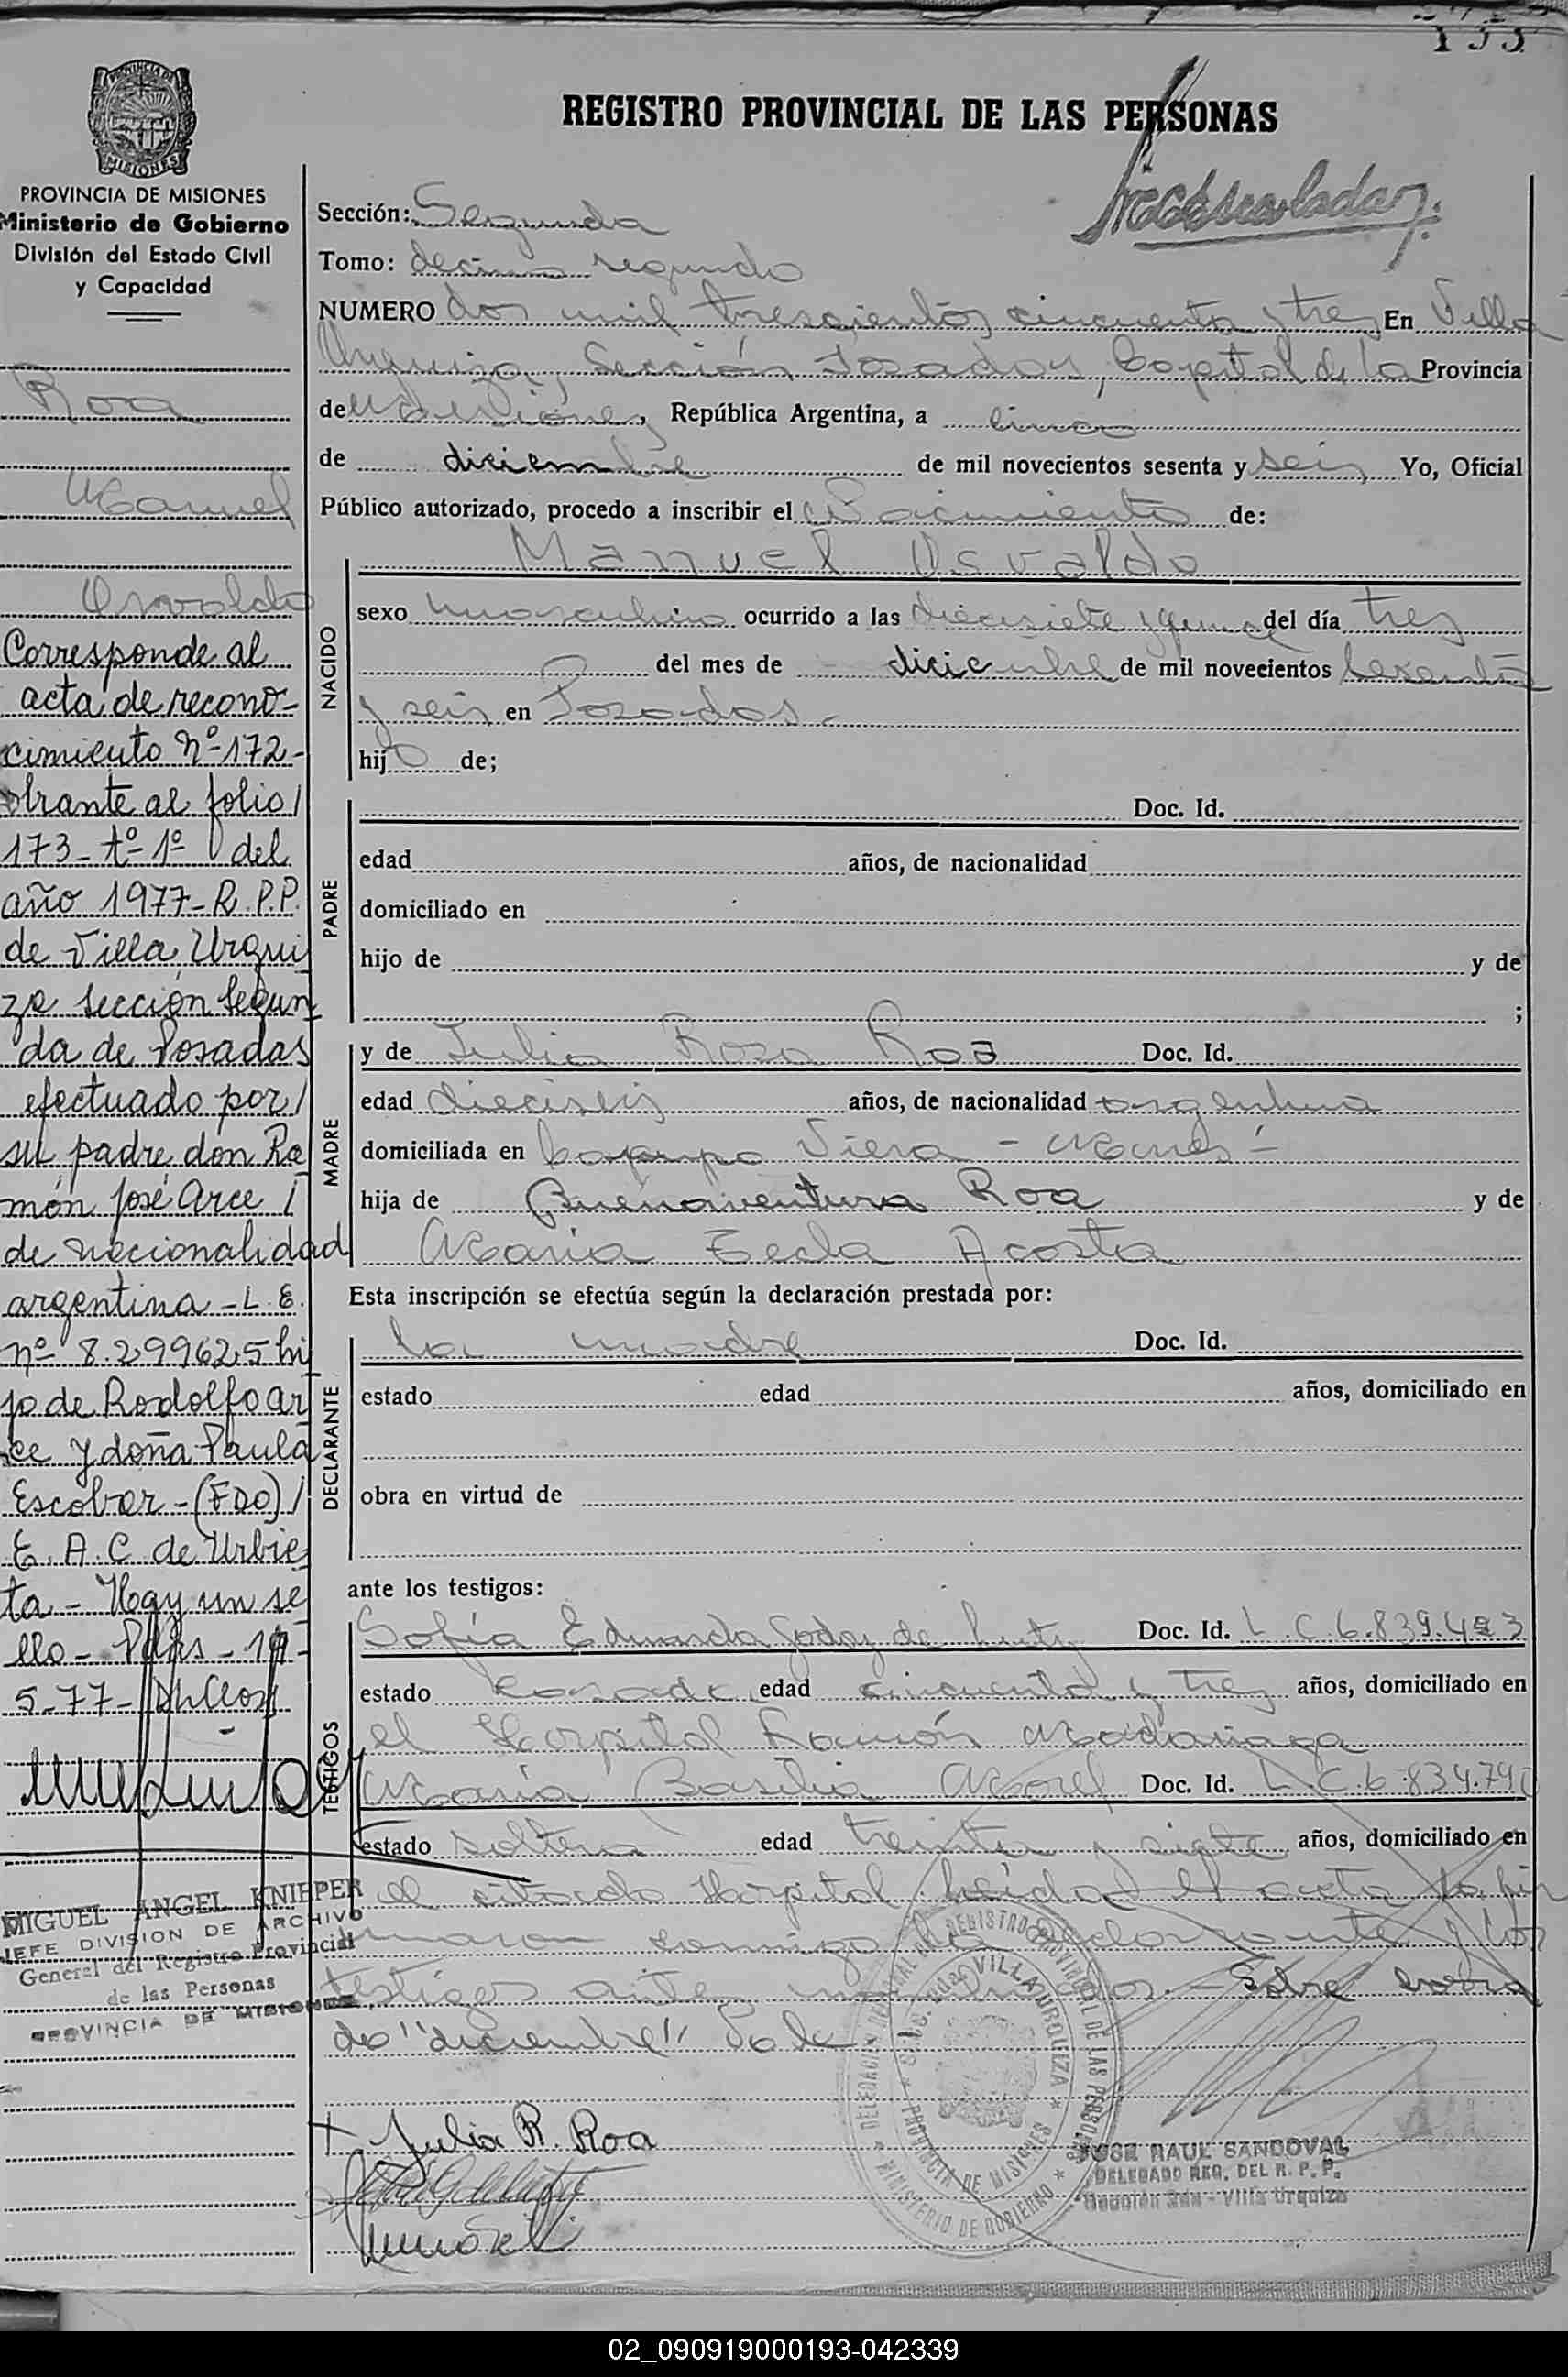 REGISTRO PROVINCIAL DE LAS PERSONAS
PROVINCIA DE MISIONES
Ministerio de Gobierno
División del Estado Civil
y Capacidad
Roa
Manuel
Osvaldo
Corresponde al
acta de recono-
cimiento Nº 172-
obrante al folio/
173- tº 1º del
año 1977- R.P.P.
de Villa Urqui
za Sección Segun
da de Posadas
efectuado por/
su padre don Ra
món José Arce/
de nacionalidad
argentina - L.E.
nº 8.299625 hi
jo de Rodolfo Ar
ce y doña Paula
Escobar - (FDO)/
E. A. C de Urbie
ta - Hay un se
llo - Pdas - 19-
5-77-
MIGUEL ANGEL KNIEPER
JEFE DIVISION DE ARCHIVO
General del Registro Provincial
de las Personas
PROVINCIA DE MISIONES
Sección: Segunda
Tomo: decimo segundo
NUMERO dos mil trescientos cincuenta y tres En Villa
Urquiza, Sección Posadas, Capital de la Provincia
de Misiones, República Argentina, a cinco
de diciembre de mil novecientos sesenta y seis Yo, Oficial
Público autorizado, procedo a inscribir el Nacimiento de:
NACIDO
Manuel Osvaldo
sexo masculino ocurrido a las diecisiete y quince del día tres
del mes de diciembre de mil novecientos sesenta
y seis en Posadas.-
hijo de;
PADRE
Doc. Id.
edad años, de nacionalidad
domiciliado en
hijo de y de
;
MADRE
y de Julia Rosa Roa Doc. Id.
edad dieciseis años, de nacionalidad argentina
domiciliada en Campo Viera -
hija de Buenaventura Roa y de
Maria Tecla Acosta
Esta inscripción se efectúa según la declaración prestada por:
DECLARANTE
la madre Doc. Id.
estado edad años, domiciliado en
obra en virtud de
ante los testigos:
TESTIGOS
Sofía Eduarda Godoy de Doc. Id. L.C. 6.839.
estado casada edad cincuenta y tres años, domiciliado en
el Hospital Ramón Madariaga
María Basilia Morel Doc. Id. L.C. 6.834.
estado soltera edad treinta y siete años, domiciliado en
el citado Hospital leida el acta la fir
maron conmigo la declarante y los
testigos ante
do "diciembre" Vale
Julia R. Roa
DELEGACION REGISTRO PROVINCIAL DE LAS PERSONAS
VILLA URQUIZA
PROVINCIA DE MISIONES
MINISTERIO DE GOBIERNO
JOSE RAUL SANDOVAL
DELEGADO REG. DEL R. P. P.
Sección 2da - Villa Urquiza
02_090919000193-042339